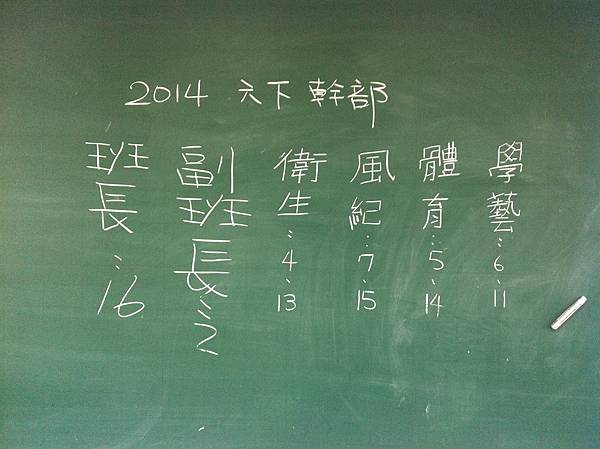 2014 六下 幹部
班長:16
副班長:2
衛生:4、13
風紀:7、15
體育:5、14
學藝:6、11